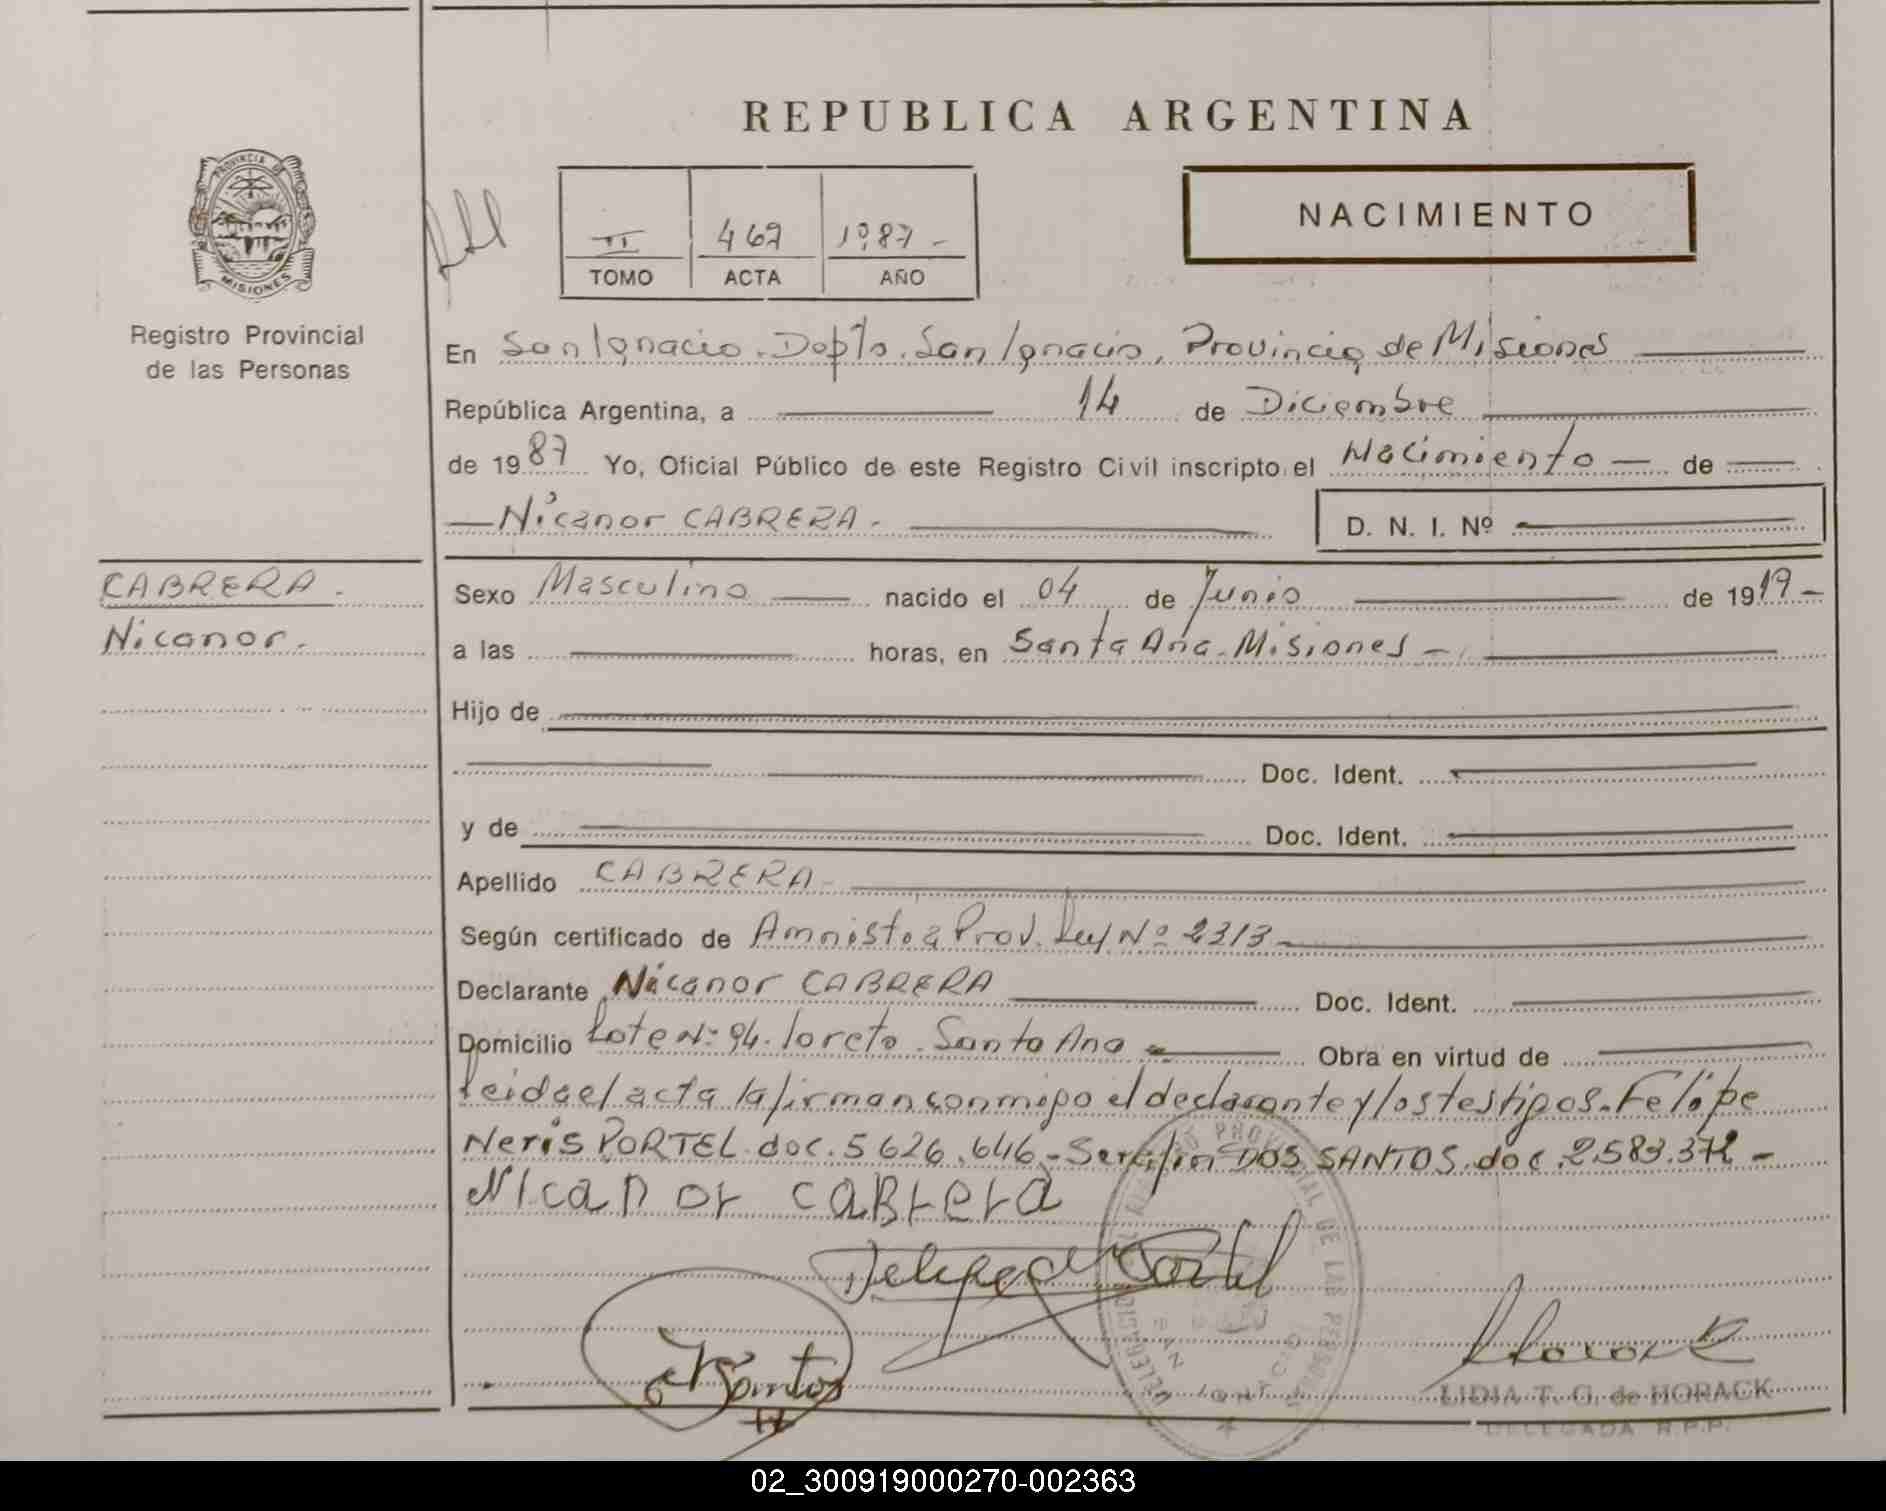 REPUBLICA ARGENTINA
PROVINCIA DE
MISIONES
Registro Provincial
de las Personas
II 467 1987 -
TOMO ACTA AÑO
NACIMIENTO
En San Ignacio. Depto. San Ignacio, Provincia de Misiones
República Argentina, a 14 de Diciembre
de 1987 Yo, Oficial Público de este Registro Civil inscripto el Nacimiento - de
Nicanor CABRERA - D. N. I. Nº
CABRERA -
Nicanor.
Sexo Masculino nacido el 04 de Junio de 1919 -
a las horas, en Santa Ana. Misiones -
Hijo de
Doc. Ident.
y de Doc. Ident.
Apellido CABRERA -
Según certificado de Amnistia Prov. Ley Nº 2313 -
Declarante Nicanor CABRERA Doc. Ident.
Domicilio Lote Nº 94. Loreto. Santa Ana - Obra en virtud de
Leida el acta la firman conmigo el declarante y los testigos. Felipe
Neris PORTEL. doc. 5626.646 - Serafin DOS SANTOS. doc. 2.583.372 -
Nicanor caBrera
DELEGACION REGISTRO PROVINCIAL DE LAS PERSONAS
SAN IGNACIO
LIDIA T. G. de HORACK
DELEGADA R.P.P.
02_300919000270-002363